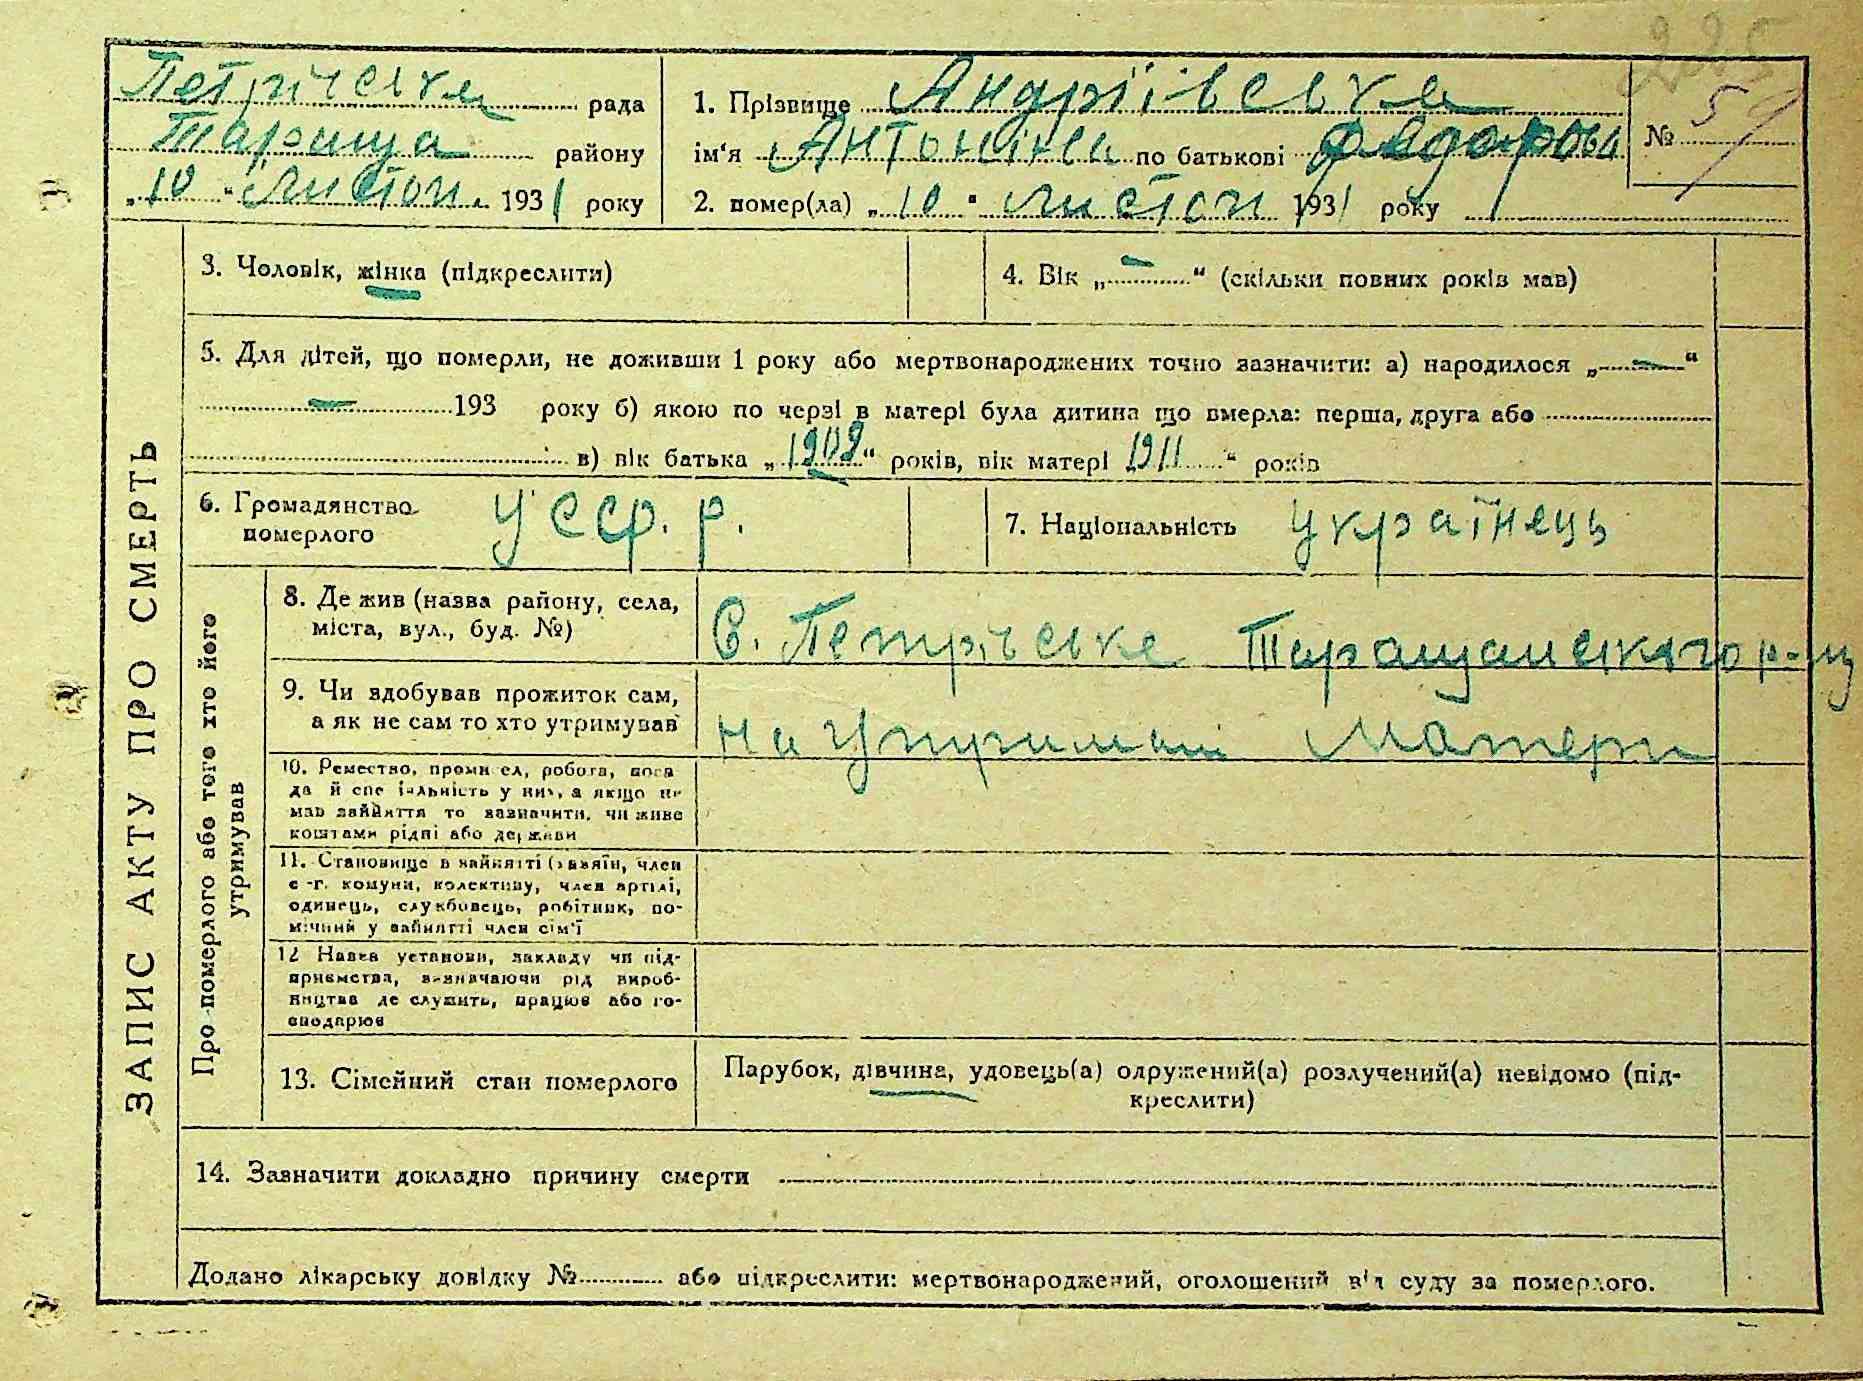 225
Петрівська рада
Тараща району
„10“ листоп. 1931 року
1. Прізвище Андріївська
ім'я Антоніна по батькові Федорова
№ 59
2. помер(ла) „10“ листоп 1931 року
ЗАПИС АКТУ ПРО СМЕРТЬ
3. Чоловік, жінка (підкреслити)
4. Вік „ — “ (скільки повних років мав)
5. Для дітей, що померли, не доживши 1 року або мертвонароджених точно зазначити: а) народилося „ — “
— 193 року б) якою по черзі в матері була дитина що вмерла: перша, друга або
в) вік батька „1909“ років, вік матері „1911“ років
6. Громадянство
померлого
УССР. р.
7. Національність українець
Про померлого або того хто його
утримував
8. Де жив (назва району, села,
міста, вул., буд. №)
С. Петрівське Таращанськаго р-ну
9. Чи здобував прожиток сам,
а як не сам то хто утримував
на утримані матери
10. Ремество, промисел, робота, поса
да й спеціальність у них, а якщо не
мав зайняття то зазначити, чи живе
коштами рідні або держави
11. Становище в занятті (хазяїн, член
с.-г. комуни, колективу, член артілі,
одинець, службовець, робітник, по-
мічний у занятті член сім'ї
12 Назва установи, закладу чи під-
приємства, визначаючи рід вироб-
ництва де служить, працює або го-
сподарює
13. Сімейний стан померлого
Парубок, дівчина, удовець(а) одружений(а) розлучений(а) невідомо (під-
креслити)
14. Зазначити докладно причину смерти
Додано лікарську довідку № або підкреслити: мертвонароджений, оголошений від суду за померлого.